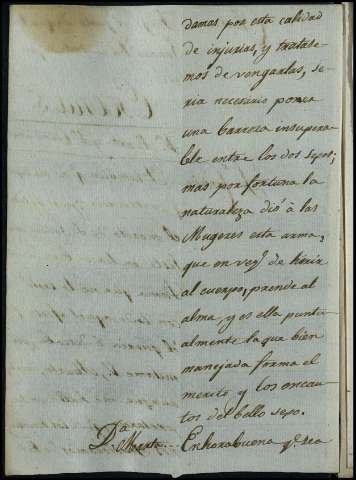 damas por esta calidad
de injurias, y tratase-
mos de vengarlas, se-
ria necesario poner
una barrera insupera-
ble entre los dos sexos;
mas por fortuna la
naturaleza dió à las
Mugeres esta arma,
que en vez de herir
al cuerpo, prende al
alma y es ella puntu-
almente la que bien
manejada forma el
merito y los encan-
tos del bello sexo.
D.ª Marta... Enhorabuena q.e sea